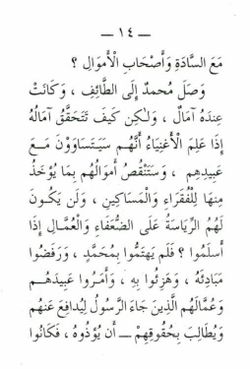 — ١٤ —
مَعَ السَّادَةِ وَأَصْحَابِ الْأَمْوَالِ ؟
وَصَلَ مُحمدٌ إِلَى الطَّائِفِ ، وَكَانَتْ
عِنْدَهُ آمَالٌ ، وَلٰكِنْ كَيْفَ تَتَحَقَّقُ آمَالُهُ
إِذَا عَلِمَ الْأَغْنِيَاءُ أَنَّهُم سَيَتَسَاوَوْنَ مَعَ
عَبِيدِهِم ، وَسَتَنْقُصُ أَمْوَالُهُم بِمَا يُؤخَذُ
مِنْهَا لِلْفُقَرَاءِ وَالْمَسَاكِينِ ، وَلَن يَكُونَ
لَهُم الرِّيَاسَةُ عَلَى الضُّعَفَاءِ وَالْعُمَّالِ إِذَا
أَسْلَمُوا ؟ فَلَم يَهتَمُّوا بِمُحَمَّدٍ ، وَرَفَضُوا
مَبَادِئَهُ ، وَهَزِئُوا بِهِ ، وَأَمَرُوا عَبِيدَهُم
وَعُمَّالَهُم الَّذِينَ جَاءَ الرَّسُولُ لِيُدَافِعَ عَنْهُم
وَيُطَالِبَ بِحُقُوقِهِمْ — أَن يُؤْذُوهُ ، فَكَانُوا